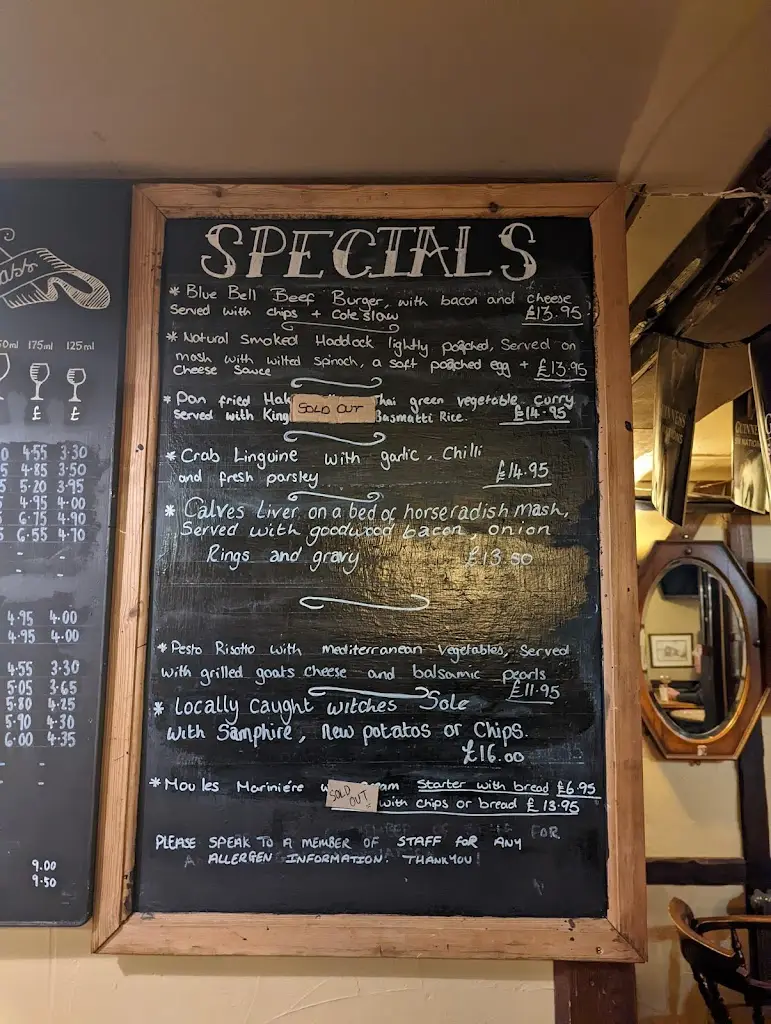 SPECIALS
* Blue Bell Beef Burger, with bacon and cheese
Served with chips + Coleslaw £13.95
* Natural Smoked Haddock lightly poached, Served on
mash with wilted spinach, a soft poached egg +
Cheese Sauce £13.95
* Pan fried Hak SOLD OUT Thai green vegetable curry
Served with King Basmatti Rice. £14.95
* Crab Linguine with garlic, Chilli
and fresh parsley £14.95
* Calves Liver on a bed of horseradish mash,
Served with goodwood bacon, onion
Rings and gravy £13.50
* Pesto Risotto with mediterranean Vegetables, Served
with grilled goats cheese and balsamic pearls
£11.95
* Locally Caught witches Sole
with Samphire, new potatos or Chips.
£16.00
* Moules Mariniére SOLD OUT Starter with bread £6.95
with chips or bread £13.95
PLEASE SPEAK TO A MEMBER OF STAFF FOR ANY
ALLERGEN INFORMATION. THANKYOU!
175ml 125ml
£ £
4.55 3.30
4.85 3.50
5.20 3.95
4.95 4.00
6.75 4.90
6.55 4.70
- -
4.95 4.00
4.95 4.00
4.55 3.30
5.05 3.65
5.80 4.25
5.90 4.30
6.00 4.35
- -
9.00
9.50
GUINNESS
GUINNESS
SIX NATIONS